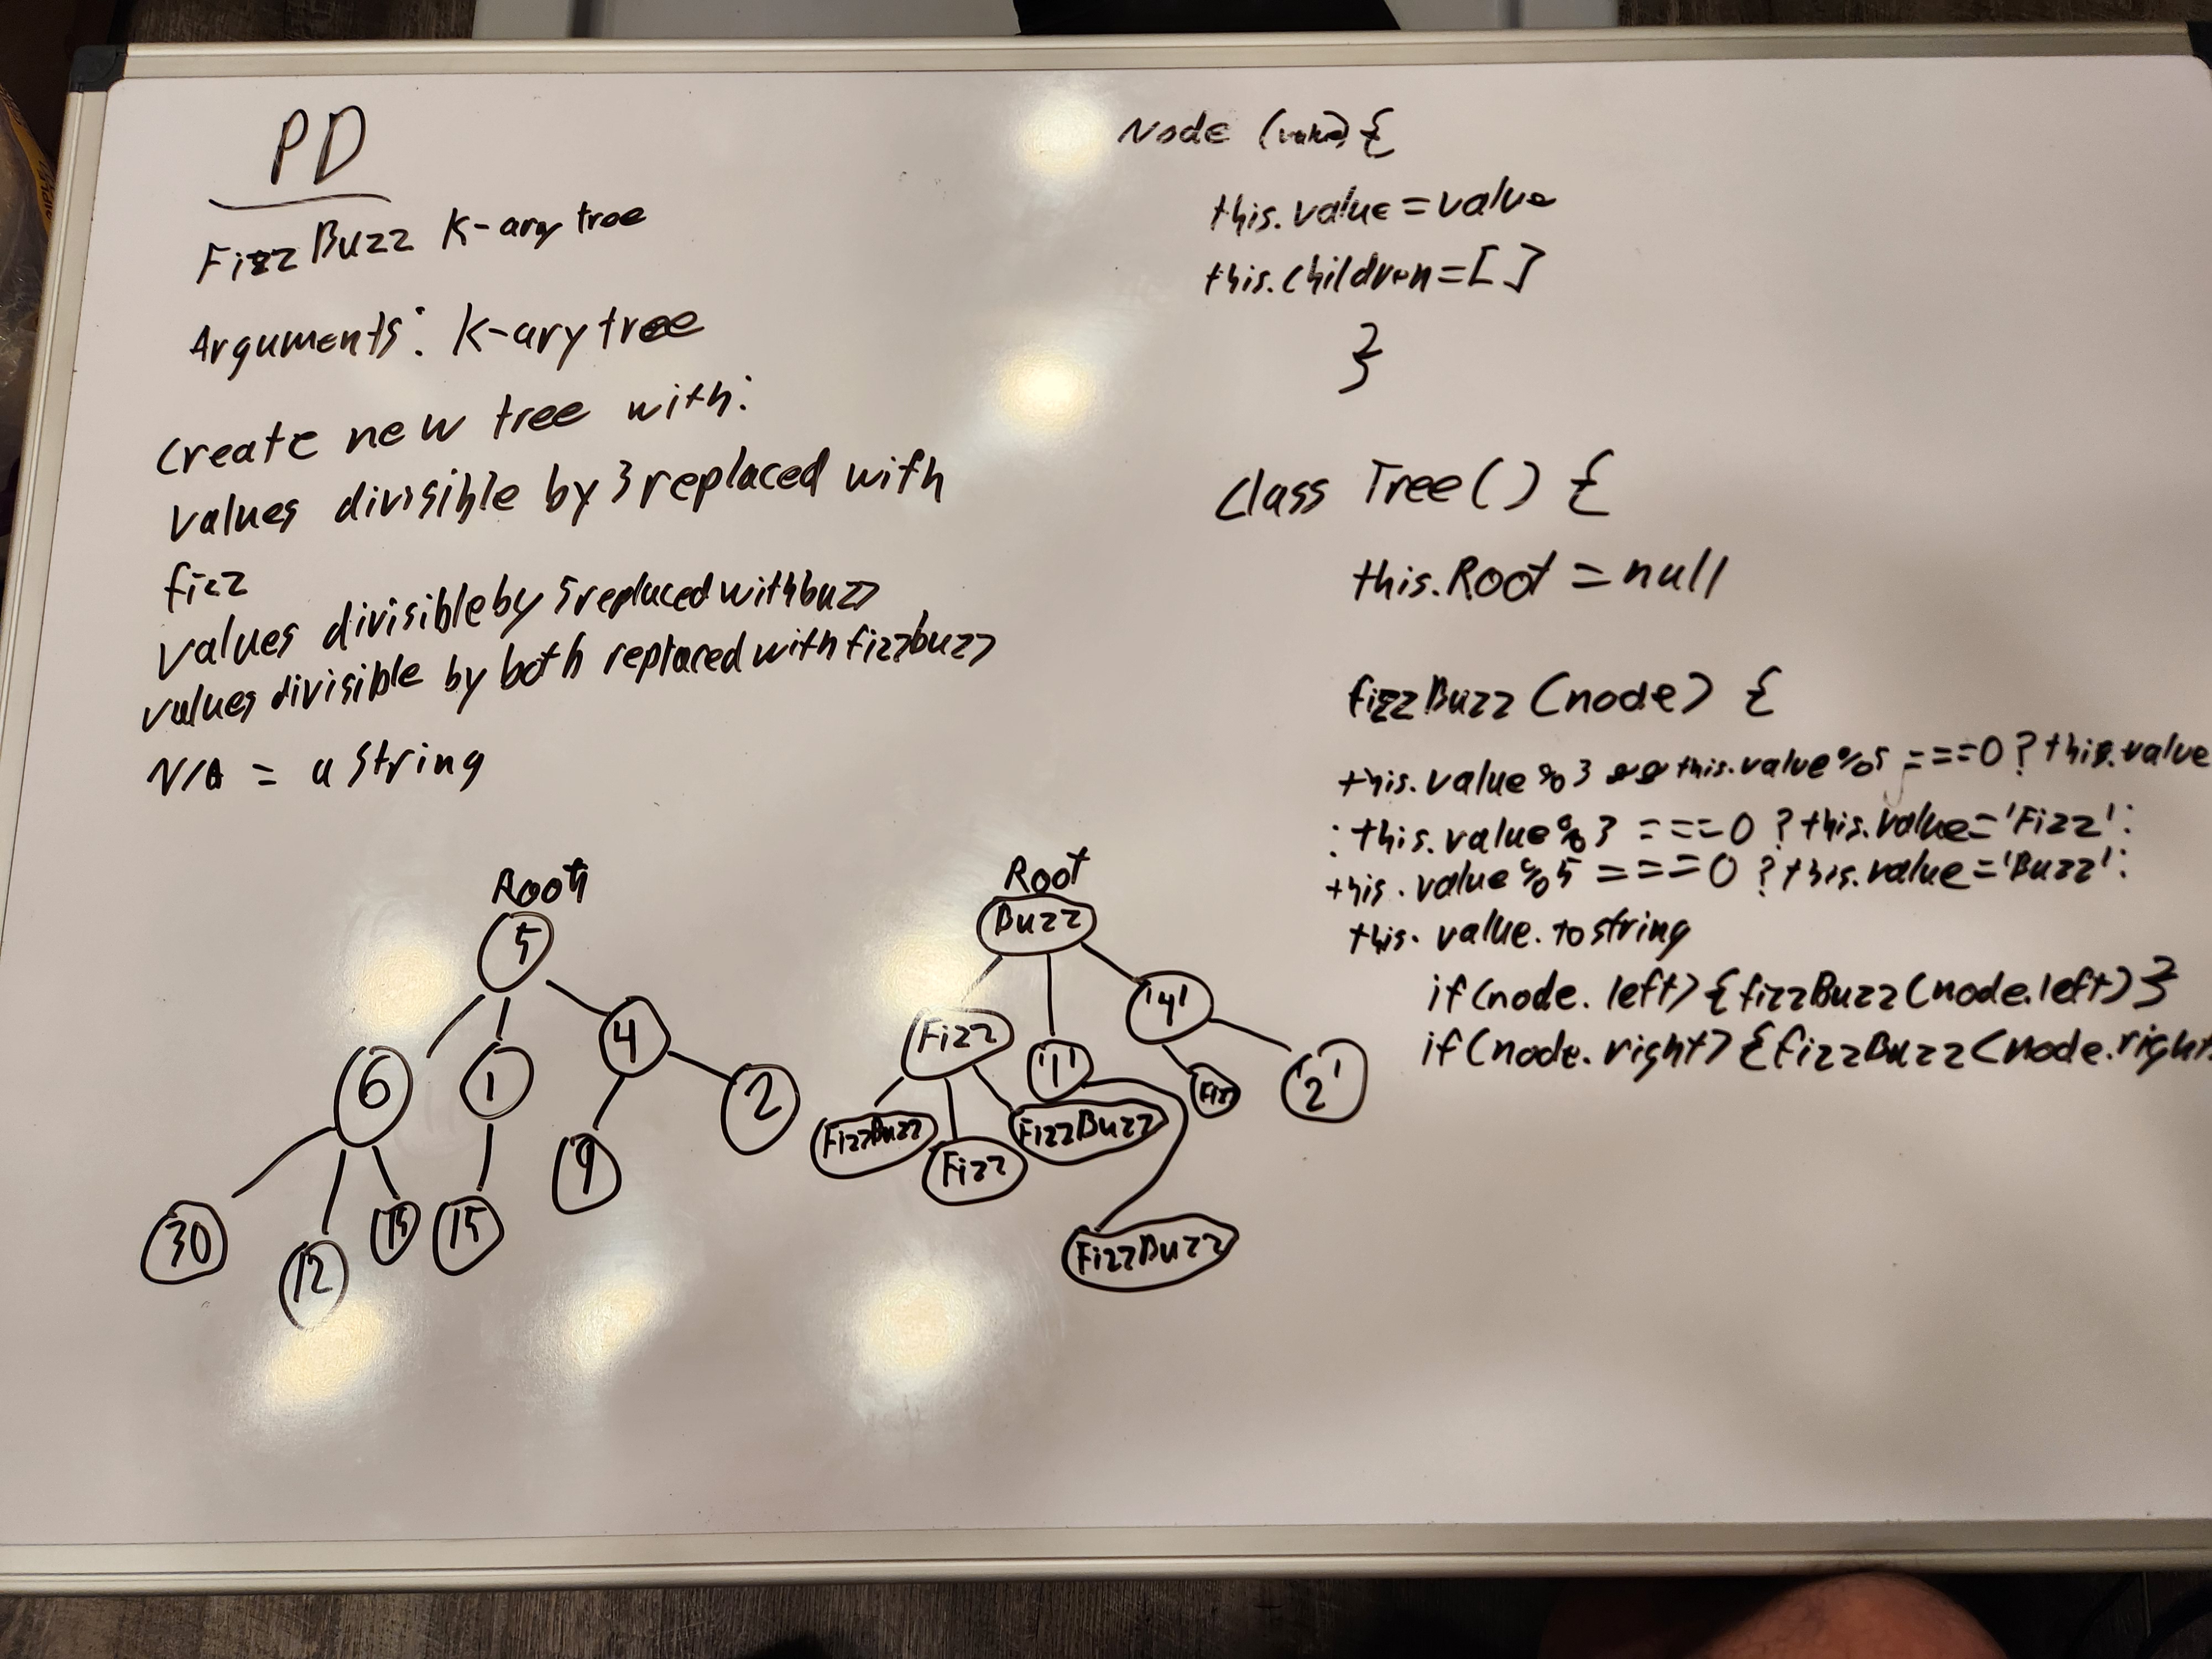 PD
FizzBuzz K-ary tree
Arguments: K-ary tree
Create new tree with:
values divisible by 3 replaced with
fizz
values divisible by 5 replaced with buzz
values divisible by both replaced with fizzbuzz
N/A = a string
Root
5
6
1
4
30
12
15
9
2
Root
Buzz
Fizz
'1'
'4'
FizzBuzz
Fizz
FizzBuzz
FizzBuzz
'2'
Node (value) {
this.value = value
this.children = [ ]
}
Class Tree() {
this.Root = null
fizzBuzz (node) {
this.value % 3 && this.value % 5 === 0 ? this.value
: this.value % 3 === 0 ? this.value = 'Fizz' :
this.value % 5 === 0 ? this.value = 'Buzz' :
this.value.tostring
if (node.left) {fizzBuzz (node.left) }
if (node.right) {fizzBuzz (node.right